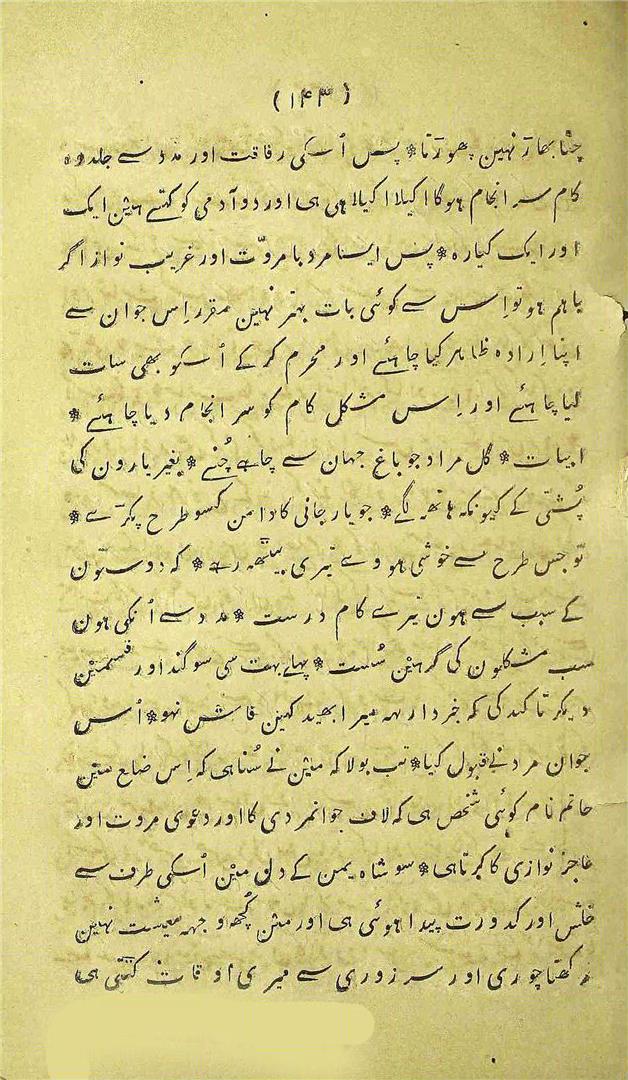 (۱۴۳)
چنا بھاڑ نہین پھوڑتا * پس اُسکی رفاقت اور مدد سے جلد وہ
کام سر انجام ہوگا اکیلا اکیلا ہی ہی اور دو آدمی کو کہتے ہین ایک
اور ایک گیارہ * پس ایسا مرد بامروّت اور غریب نواز اگر
باہم ہو تو اِس سے کوئی بات بہتر نہین مقرر اِس جوان سے
اپنا اِرادہ ظاہر کیا چاہئے اور محرم کرکے اُسکو بھی سات
لیا چاہئے اور اِس مشکل کام کو سر انجام دیا چاہئے *
ابیات * گل مراد جو باغ جہان سے چاہے چُنے * بغیر یارون کی
پُشتی کے کیونکہ ہاتھ لگے * جو یار جانی کا دامن کسو طرح پکڑے *
تو جس طرح سے خوشی ہووے تیری بیٹھہ رہے * کہ دوستون
کے سبب سے ہون تیرے کام درست * مدد سے اُنکی ہون
سب مشکلون کی گرہین سُست * پہلے بہت سی سوگند اور قسمین
دیکر تاکید کی کہ خبردار یہہ میرا بھید کہین فاش نہو * اُس
جوان مرد نے قبول کیا * تب بولا کہ مین نے سُنا ہی کہ اِس ضلع مین
حاتم نام کوئی شخص ہی کہ لاف جوانمردی کا اور دعوی مروت اور
عاجز نوازی کا کرتا ہی * سو شاہ یمن کے دل مین اُسکی طرف سے
خلش اور کدورت پیدا ہوئی ہی اور مین کُچھہ وجہہ معیشت نہین
رکھتا چوری اور سرزوری سے میری اوقات کٹتی ہی